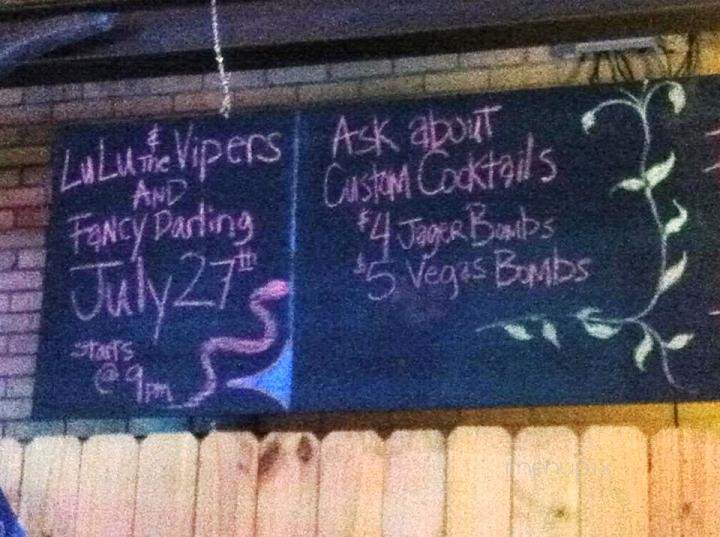 LuLu & The Vipers
AND
Fancy Darling
July 27th
starts
@ 9pm
Ask about
Custom Cocktails
$4 Jager Bombs
$5 Vegas Bombs